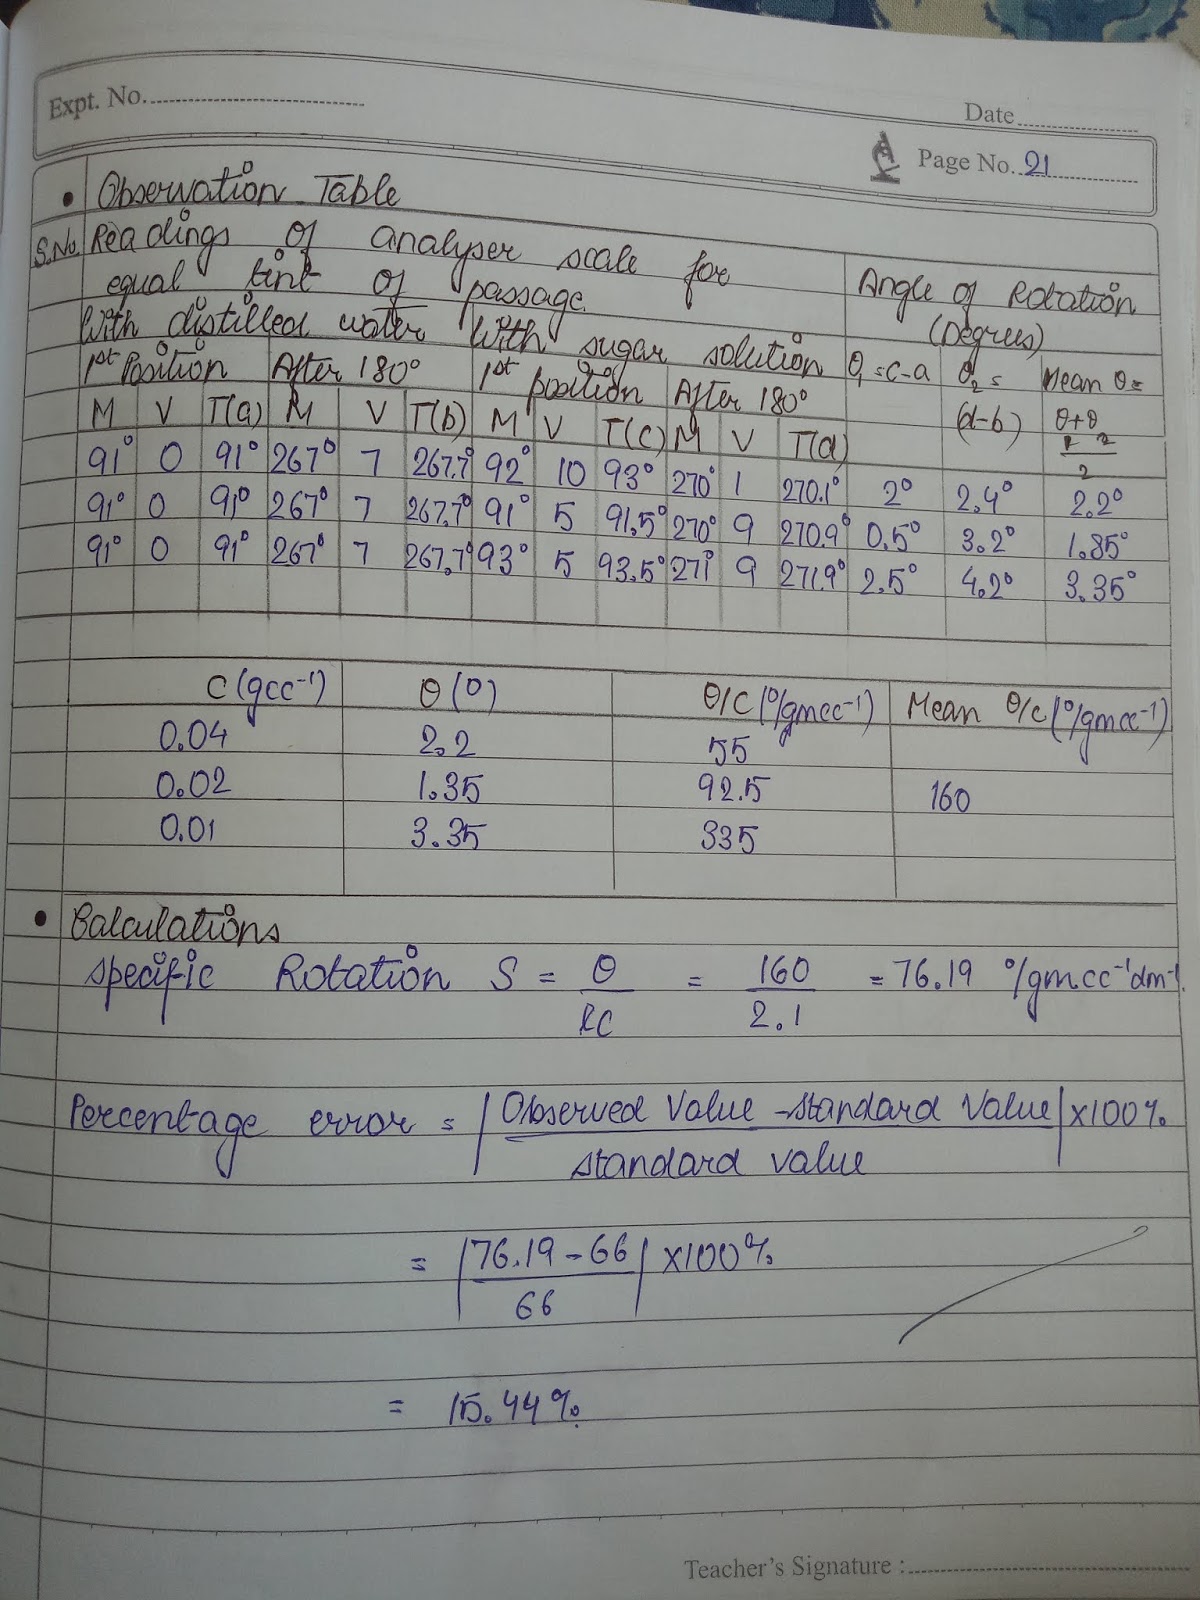 Expt. No.
Date
Page No. 21
• Observation Table
S.No. Readings of analyser scale for equal tint of passage. Angle of Rotation (Degrees)
With distilled water With sugar solution
1st Position After 180° 1st position After 180° θ1 = c-a θ2 = (d-b) Mean θ = θ1+θ2/2
M V T(a) M V T(b) M V T(c) M V T(d)
91° 0 91° 267° 7 267.7° 92° 10 93° 270° 1 270.1° 2° 2.4° 2.2°
91° 0 91° 267° 7 267.7° 91° 5 91.5° 270° 9 270.9° 0.5° 3.2° 1.85°
91° 0 91° 267° 7 267.7° 93° 5 93.5° 271° 9 271.9° 2.5° 4.2° 3.35°
C (gcc⁻¹) θ (0) θ/C (°/gmcc⁻¹) Mean θ/c (°/gmcc⁻¹)
0.04 2.2 55
0.02 1.35 92.5 160
0.01 3.35 335
• Calculations
Specific Rotation S = θ/lC = 160/2.1 = 76.19 °/gmcc⁻¹dm⁻¹.
Percentage error = |Observed Value - Standard Value/Standard value| x100%
= |76.19 - 66/66| x100%
= 15.44%.
Teacher's Signature :